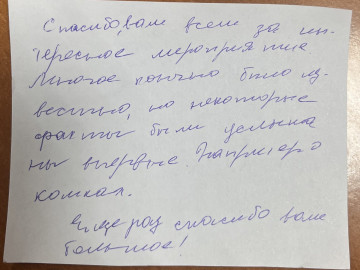 Спасибо, вам всем за ин-
тересное мероприятие
Многое конечно было из-
вестно, но некоторые
факты были услыша
ны впервые. Например о
комках.
Еще раз спасибо вам
большое!